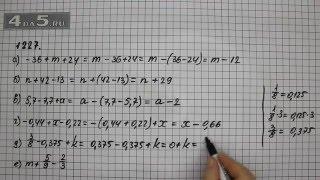 4DA5.RU
1227.
а) -36+m+24 = m-36+24 = m-(36-24) = m-12
б) n+42-13 = n+(42-13) = n+29
в) 5,7-7,7+a = a-(7,7-5,7) = a-2
г) -0,44+x-0,22 = -(0,44+0,22)+x = x-0,66
д) 3/8 -0,375+k = 0,375-0,375+k = 0+k =
е) m+ 5/9 - 2/3
1/8 = 0,125
1/8 · 3 = 0,125·3
3/8 = 0,375